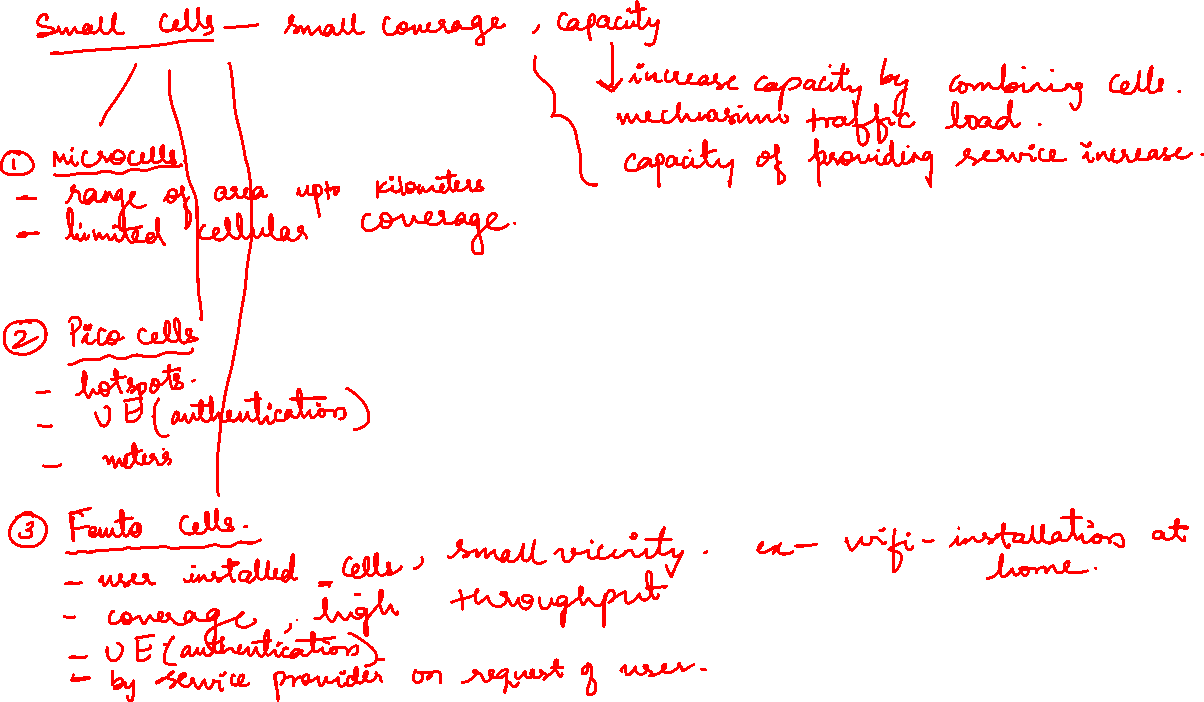 Small cells — small coverage , capacity
↓ increase capacity by combining cells.
mechanism traffic load .
capacity of providing service increase.
① Microcells
- range of area upto kilometers
- limited cellular coverage.
② Pico cells
- hotspots.
- UE (authentication)
- meters
③ Femto cells.
- user installed cells, small vicinity. ex- wifi-installation at home.
- coverage, high throughput
- UE (authentication)
- by service provider on request of user.